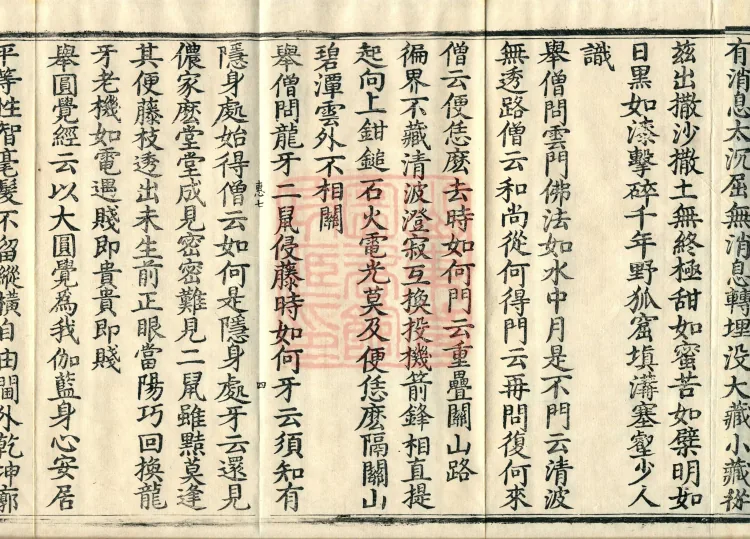 有消息太沉屈無消息轉埋没大藏小藏從
玆出撒沙撒土無終極甜如蜜苦如檗明如
日黒如漆擊碎千年野狐窟填溝塞壑少人
識
舉僧問雲門佛法如水中月是不門云清波
無透路僧云和尚從何得門云再問復何來
僧云便恁麽去時如何門云重疊關山路
徧界不藏清波澄寂互換投機箭鋒相直提
起向上鉗鎚石火電光莫及便恁麽隔關山
碧潭雲外不相關
舉僧問龍牙二鼠侵藤時如何牙云須知有
惠七
四
隱身處始得僧云如何是隱身處牙云還見
儂家麽堂堂成見密密難見二鼠雖黠莫逢
其便藤枝透出未生前正眼當陽巧回換龍
牙老機如電遇賤即貴貴即賤
舉圓覺經云以大圓覺爲我伽藍身心安居
平等性智毫髮不留縱橫自由閫外乾坤廓